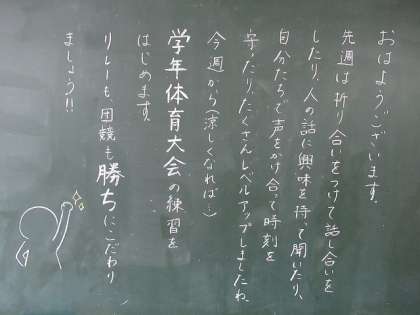 おはようございます。
先週は折り合いをつけて話し合いを
したり、人の話に興味を持って聞いたり、
自分たちで声をかけ合って時刻を
守ったり、たくさんレベルアップしましたね。
今週から(涼しくなれば…)
学年体育大会の練習を
はじめます。
リレーも、団競も勝ちにこだわり
ましょう!!